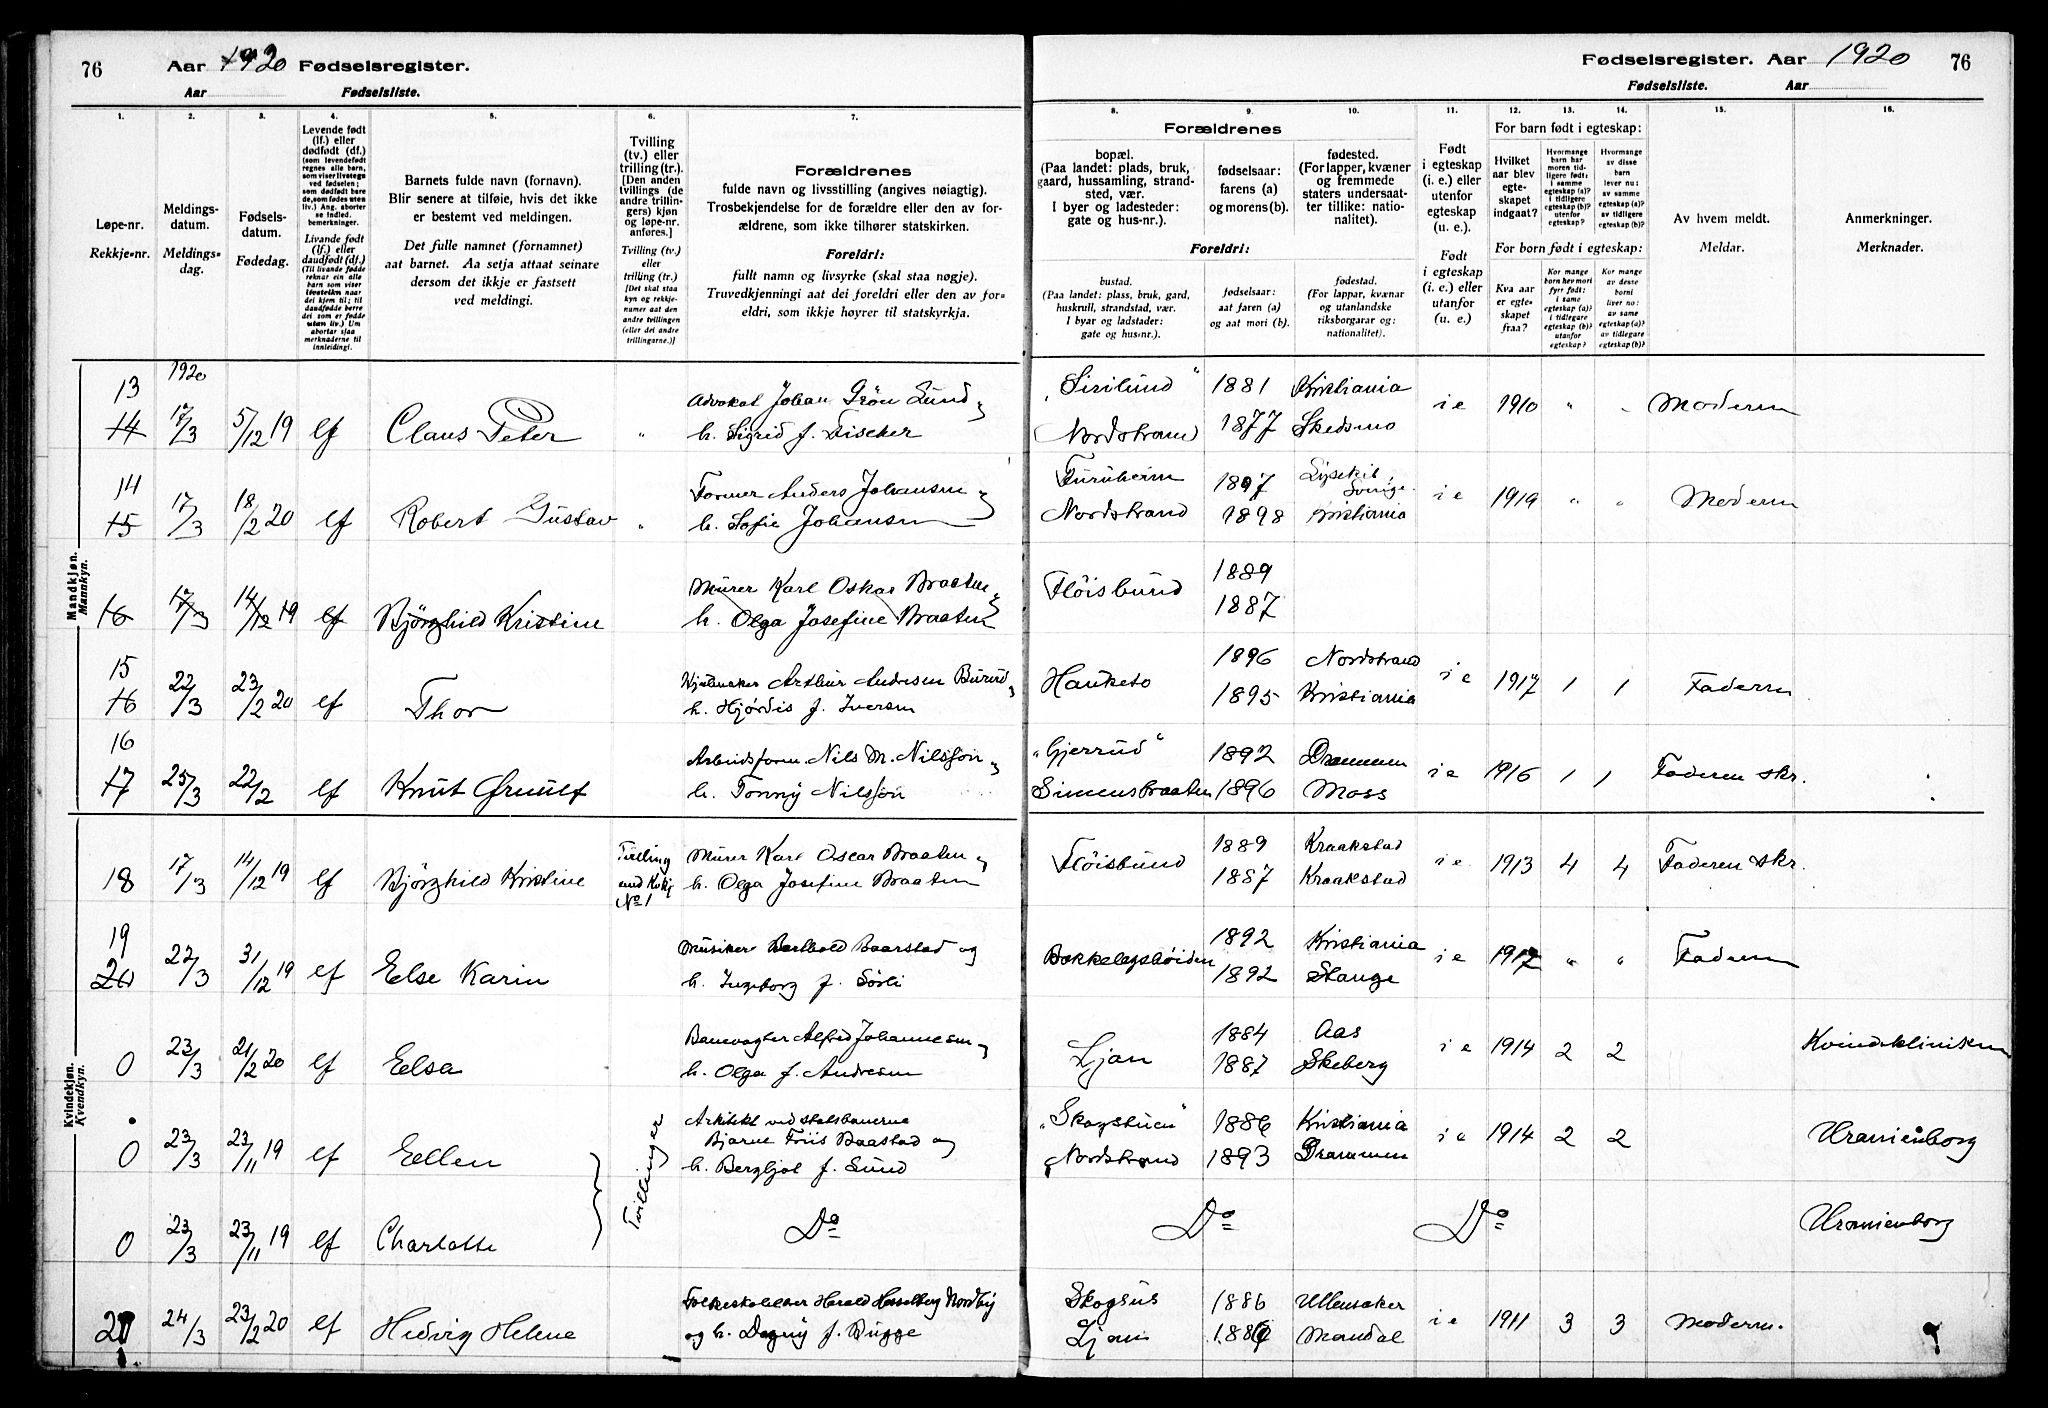 76 Aar 1920 Fødselsregister.
Aar Fødselsliste.
Fødselsregister. Aar 1920 76
Fødselsliste. Aar
1. 2. 3. 4. 5. 6. 7.
Løpe-nr.
Rekkje-nr.
Meldings-
datum.
Meldings-
dag.
Fødsels-
datum.
Fødedag.
Levende født
(lf.) eller
dødfødt (df.)
(som levendefødt
regnes alle barn,
som viser livstegn
ved fødselen;
som dødfødt bare
de, som fødes uten
liv.) Ang. aborter
se indled.
bemerkninger.
Livande født
(lf.) eller
daudfødt (df.)
(Til livande fødde
reknar ein alle
barn som viser
livsteikn naar
dei kjem til; til
daudfødde berre
dei som er fødde
utan liv.) Um
abortar sjaa
merknaderne til
innleidingi.
Barnets fulde navn (fornavn).
Blir senere at tilføie, hvis det ikke
er bestemt ved meldingen.
Det fulle namnet (fornamnet)
aat barnet. Aa setja attaat seinare
dersom det ikkje er fastsett
ved meldingi.
Tvilling
(tv.) eller
trilling (tr.).
[Den anden
tvillings (de
andre trillin-
gers) kjøn
og løpe-nr.
anføres.]
Tvilling (tv.)
eller
trilling (tr.)
[Det skal staa
kyn og rekkje-
numer aat den
andre tvillingen
(eller dei andre
trillingarne.)]
Forældrenes
fulde navn og livsstilling (angives nøiagtig).
Trosbekjendelse for de forældre eller den av for-
ældrene, som ikke tilhører statskirken.
Foreldri:
fullt namn og livsyrke (skal staa nøgje).
Truvedkjenningi aat dei foreldri eller den av for-
eldri, som ikkje høyrer til statskyrkja.
8. 9. 10. 11. 12. 13. 14. 15. 16.
Forældrenes
bopæl.
(Paa landet: plads, bruk,
gaard, hussamling, strand-
sted, vær.
I byer og ladesteder:
gate og hus-nr.).
fødselsaar:
farens (a)
og morens (b).
fødested.
(For lapper, kvæner
og fremmede
staters undersaat-
ter tillike: natio-
nalitet).
Foreldri:
bustad.
(Paa landet: plass, bruk, gard,
huskrull, strandstad, vær.
I byar og ladstader:
gate og hus-nr.).
fødselsaar:
aat faren (a)
og aat mori (b).
fødestad.
(For lappar, kvænar
og utanlandske
riksborgarar og:
nationalitet).
Født
i egteskap
(i. e.) eller
utenfor
egteskap
(u. e.).
Født
i egteskap
(i. e.) eller
utanfor
(u. e.)
For barn født i egteskap:
Hvilket
aar blev
egte-
skapet
indgaat?
Hvormange
barn har
moren tid-
ligere født:
i samme
egteskap (a)?
i tidligere
egteskap (b)?
utenfor
egteskap?
Hvormange
av disse
barn
lever nu:
av samme
egteskap (a)?
av tidligere
egteskap (b)?
For born født i egteskap:
Kva aar
er egte-
skapet
fraa?
Kor mange
born hev mori
fyrr født:
i same
egteskap (a)?
i tidlegare
egteskap (b)?
utanfor
egteskap?
Kor mange
av desse
borni
liver no:
av same
egteskap (a)?
av tidlegare
egteskap (b)?
Av hvem meldt.
Meldar.
Anmerkninger.
Merknader.
Mandkjøn.
Mannkyn.
1920
13 14 17/3 5/12 19 lf Claus Peter " Advokat Johan Grön Lund og
h. Sigrid f. Fischer
"Sirilund" Nordstrand 1881 1877 Kristiania Skedsmo i e 1910 " " Moderen
14 15 17/3 18/2 20 lf Robert Gustav " Former Anders Johansen og
h. Sofie Johansen
Furuheim Nordstrand 1897 1898 Lysekil, Sverige Kristiania i e 1919 " " Moderen
16 17/3 14/12 19 lf Bjørghild Kristine Murer Karl Oskar Braaten og
h. Olga Josefine Braaten
Fløisbund 1889 1887
15 16 22/3 23/2 20 lf Thor Arthur Andresen Burud og
h. Hjørdis f. Iversen
Hauketo 1896 1895 Nordstrand Kristiania i e 1917 1 1 Faderen
16 17 25/3 22/2 lf Knut Ørnulf Arbeidsform. Nils M. Nilsson og
h. Fonny Nilsson
"Gjerrud" Simensbraaten 1892 1896 Drammen Moss i e 1916 1 1 Faderen skr.
Kvindekjøn.
Kvendkyn.
18 17/3 14/12 19 lf Bjørghild Kristine Tvilling med Kirkj No 1 Murer Karl Oscar Braaten og
h. Olga Josefine Braaten
Fløisbund 1889 1887 Kraakstad Kraakstad i e 1913 4 4 Faderen skr.
19 20 22/3 31/12 19 lf Else Karin Musiker Barthold Baarstad og
h. Ingeborg f. Sørli
Bekkelagshøiden 1892 1892 Kristiania Stange i e 1917 " " Faderen
0 23/3 21/2 20 lf Elsa Banevogter Alfred Johannesen og
h. Olga f. Andresen
Ljan 1884 1887 Aas Skeberg i e 1914 2 2 Kvindeklinikken
0 23/3 23/11 19 lf Ellen Tvillinger Arkitekt ved statsbanerne
Bjarne Friis Baastad og
h. Bergljot f. Lund
"Skogstuen" Nordstrand 1886 1893 Kristiania Drammen i e 1914 2 2 Uranienborg
0 23/3 23/11 19 lf Charlotte Do Do Do Uranienborg
20 24/3 23/2 20 lf Hedvig Helene Folkeskolelærer Harald Hesselberg Nordby
og h. Dagny f. Bugge
Skoghus Ljan 1886 Ullensaker Mandal i e 1911 3 3 Moderen.